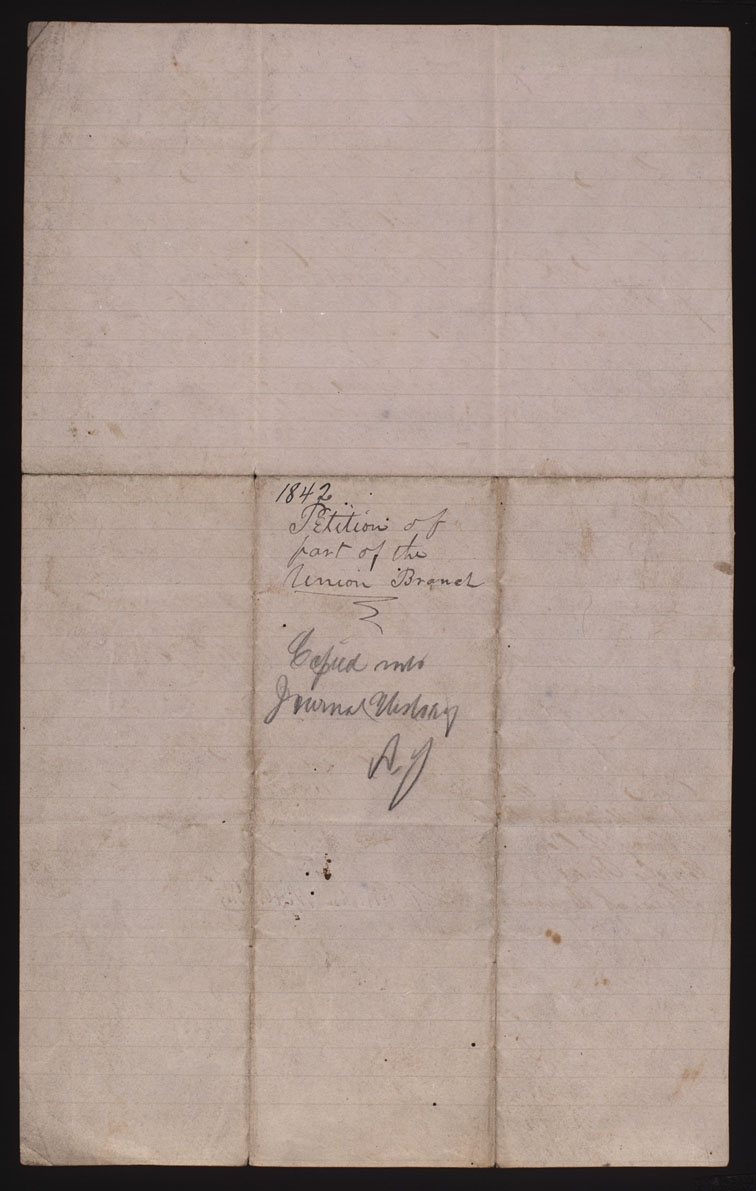 1842
Petition of
part of the
Union Branch
Copied into
Journal History
AJ